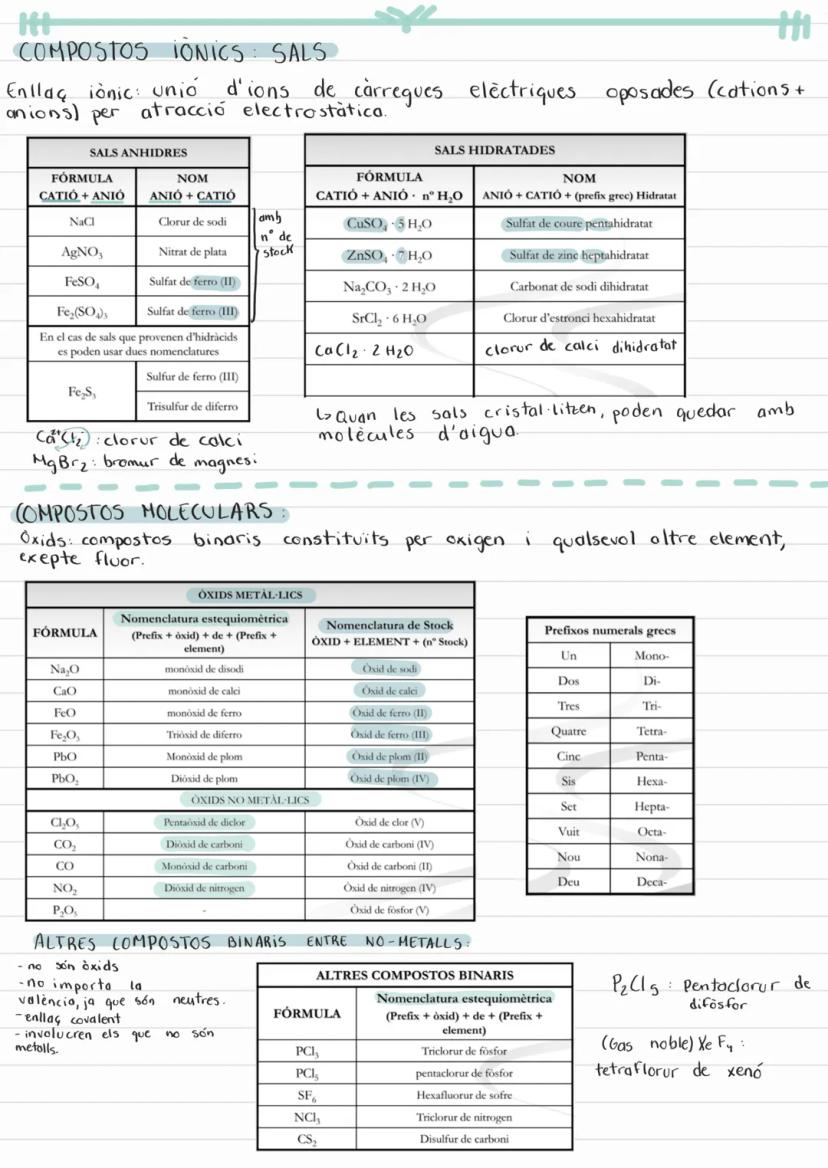 COMPOSTOS IÒNICS: SALS
Enllaç iònic: unió d'ions de càrregues elèctriques oposades (cations +
anions) per atracció electrostàtica.
SALS ANHIDRES
FÓRMULA NOM
CATIÓ + ANIÓ ANIÓ + CATIÓ
NaCl Clorur de sodi
AgNO₃ Nitrat de plata
FeSO₄ Sulfat de ferro (II)
Fe₂(SO₄)₃ Sulfat de ferro (III)
En el cas de sals que provenen d'hidràcids
es poden usar dues nomenclatures
Fe₂S₃ Sulfur de ferro (III)
Trisulfur de diferro
amb
nº de
stock
Ca²⁺Cl₂⁻: clorur de calci
MgBr₂: bromur de magnesi
SALS HIDRATADES
FÓRMULA NOM
CATIÓ + ANIÓ · nº H₂O ANIÓ + CATIÓ + (prefix grec) Hidratat
CuSO₄ · 5 H₂O Sulfat de coure pentahidratat
ZnSO₄ · 7 H₂O Sulfat de zinc heptahidratat
Na₂CO₃ · 2 H₂O Carbonat de sodi dihidratat
SrCl₂ · 6 H₂O Clorur d'estronci hexahidratat
CaCl₂ · 2 H₂O clorur de calci dihidratat
↳ Quan les sals cristal·litzen, poden quedar amb
molècules d'aigua.
COMPOSTOS MOLECULARS:
Òxids: compostos binaris constituïts per oxigen i qualsevol altre element,
exepte fluor.
ÒXIDS METÀL·LICS
FÓRMULA Nomenclatura estequiomètrica Nomenclatura de Stock
(Prefix + òxid) + de + (Prefix + ÒXID + ELEMENT + (nº Stock)
element)
Na₂O monòxid de disodi Òxid de sodi
CaO monòxid de calci Òxid de calci
FeO monòxid de ferro Òxid de ferro (II)
Fe₂O₃ Triòxid de diferro Òxid de ferro (III)
PbO Monòxid de plom Òxid de plom (II)
PbO₂ Diòxid de plom Òxid de plom (IV)
ÒXIDS NO METÀL·LICS
Cl₂O₅ Pentaòxid de diclor Òxid de clor (V)
CO₂ Diòxid de carboni Òxid de carboni (IV)
CO Monòxid de carboni Òxid de carboni (II)
NO₂ Diòxid de nitrogen Òxid de nitrogen (IV)
P₂O₅ - Òxid de fòsfor (V)
Prefixos numerals grecs
Un Mono-
Dos Di-
Tres Tri-
Quatre Tetra-
Cinc Penta-
Sis Hexa-
Set Hepta-
Vuit Octa-
Nou Nona-
Deu Deca-
ALTRES COMPOSTOS BINARIS ENTRE NO-METALLS:
- no són òxids
- no importa la
valència, ja que són neutres.
- enllaç covalent
- involucren els que no són
metalls.
ALTRES COMPOSTOS BINARIS
FÓRMULA Nomenclatura estequiomètrica
(Prefix + òxid) + de + (Prefix +
element)
PCl₃ Triclorur de fòsfor
PCl₅ pentaclorur de fòsfor
SF₆ Hexafluorur de sofre
NCl₃ Triclorur de nitrogen
CS₂ Disulfur de carboni
P₂Cl₅: Pentaclorur de
difòsfor
(Gas noble) XeF₄:
tetraflorur de xenó